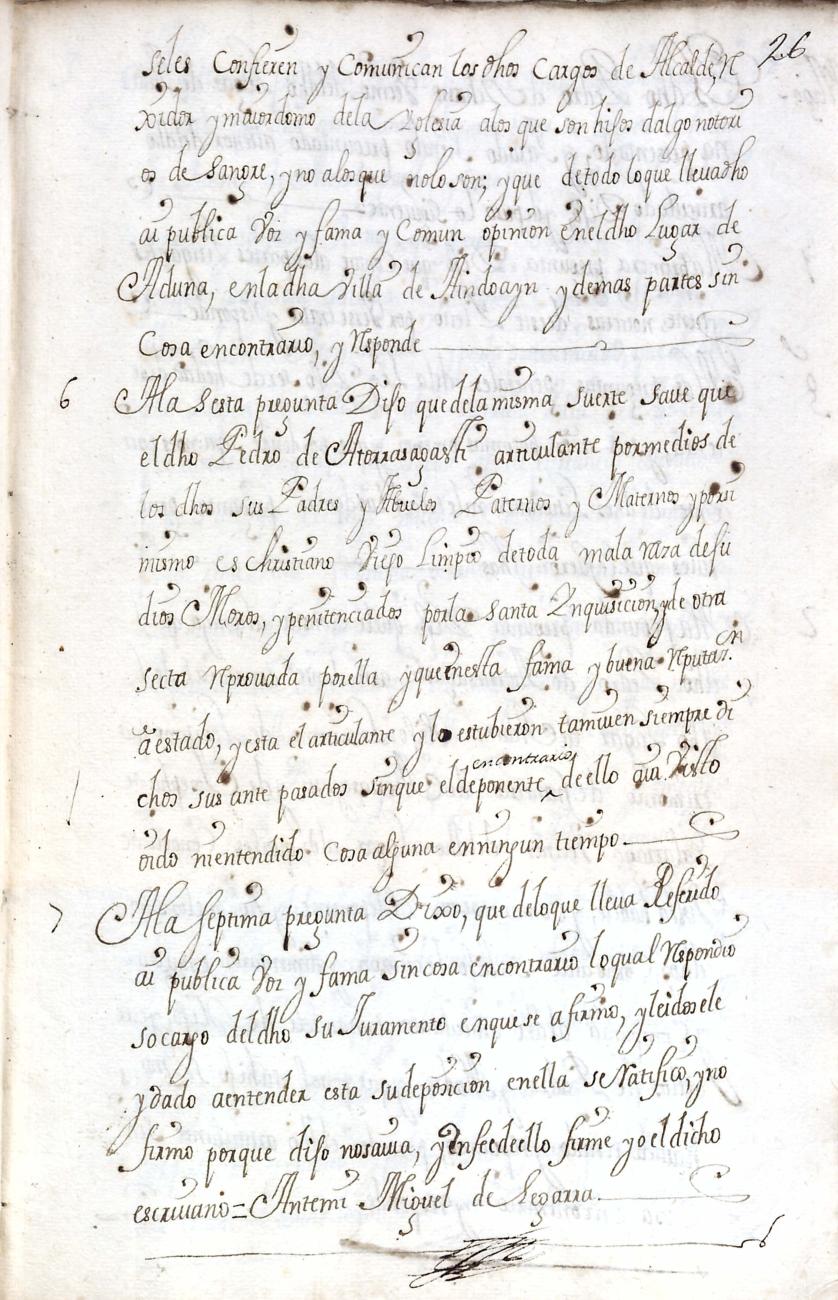 26
seles Confieren y Comunican los dhos Cargos de Alcalde, R
xidor y maiordomo dela Yglesia alos que son hijos dalgo notori
os de Sangre, y no alos que nolo son; y que detodo lo que lleva dho
ai publica Voz y fama y Comun opinion enel dho Lugar de
Aduna, enla dha Villa de Aindoayn y demas partes sin
Cosa encontrario, y Responde
6 Ala Sesta pregunta Dijo que dela misma suerte save que
el dho Pedro de Atorrasagasti articulante por medios de
los dhos sus Padres y Abuelos Paternos y Maternos y por si
mismo es Christiano Viejo Limpio detoda mala raza de Ju
dios Moros, y penitenciados por la Santa Ynquisicion, y de otra
secta Reprovada por ella y que enesta fama y buena Reputaz.on
a estado, y esta el articulante y lo estubieron tamvien siempre di
chos sus ante pasados sinque el deponente encontrario de ello aia Visto
oido ni entendido Cosa alguna en ningun tiempo
7 Ala Septima pregunta Dixo, que delo que lleva Referido
ai publica Voz y fama sin cosa encontrario lo qual Respondio
so cargo del dho su Juramento en que se afirmo, y leidosele
y dado aentender esta su deposicion en ella se Ratifico, y no
firmo porque dijo no savia, y en fee de ello firme yo el dicho
escrivano = Antemi Miguel de Legarra.